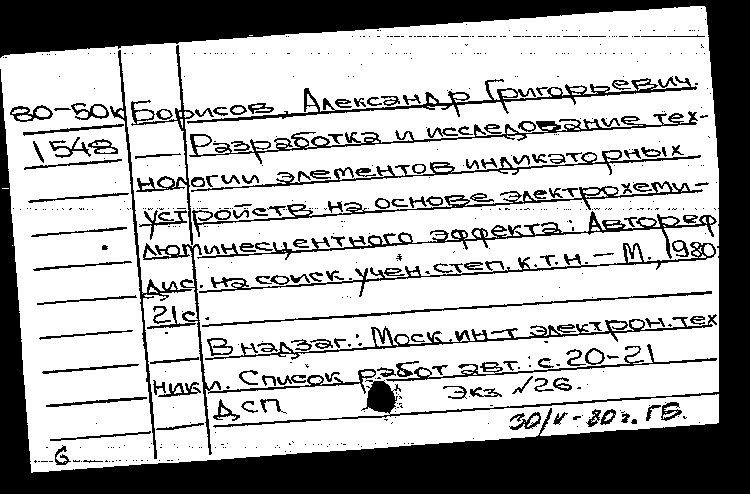 80-50к Борисов, Александр Григорьевич.
1548 Разработка и исследование тех-
нологии элементов индикаторных
устройств на основе электрохеми-
люминесцентного эффекта: Автореф.
дис. на соиск. учен. степ. к.т.н. – М., 1980.
21с.
В надзаг.: Моск. ин-т электрон. тех
ники. Список работ авт.: с. 20-21
ДСП Экз. №26.
30/V-80г. ГБ.